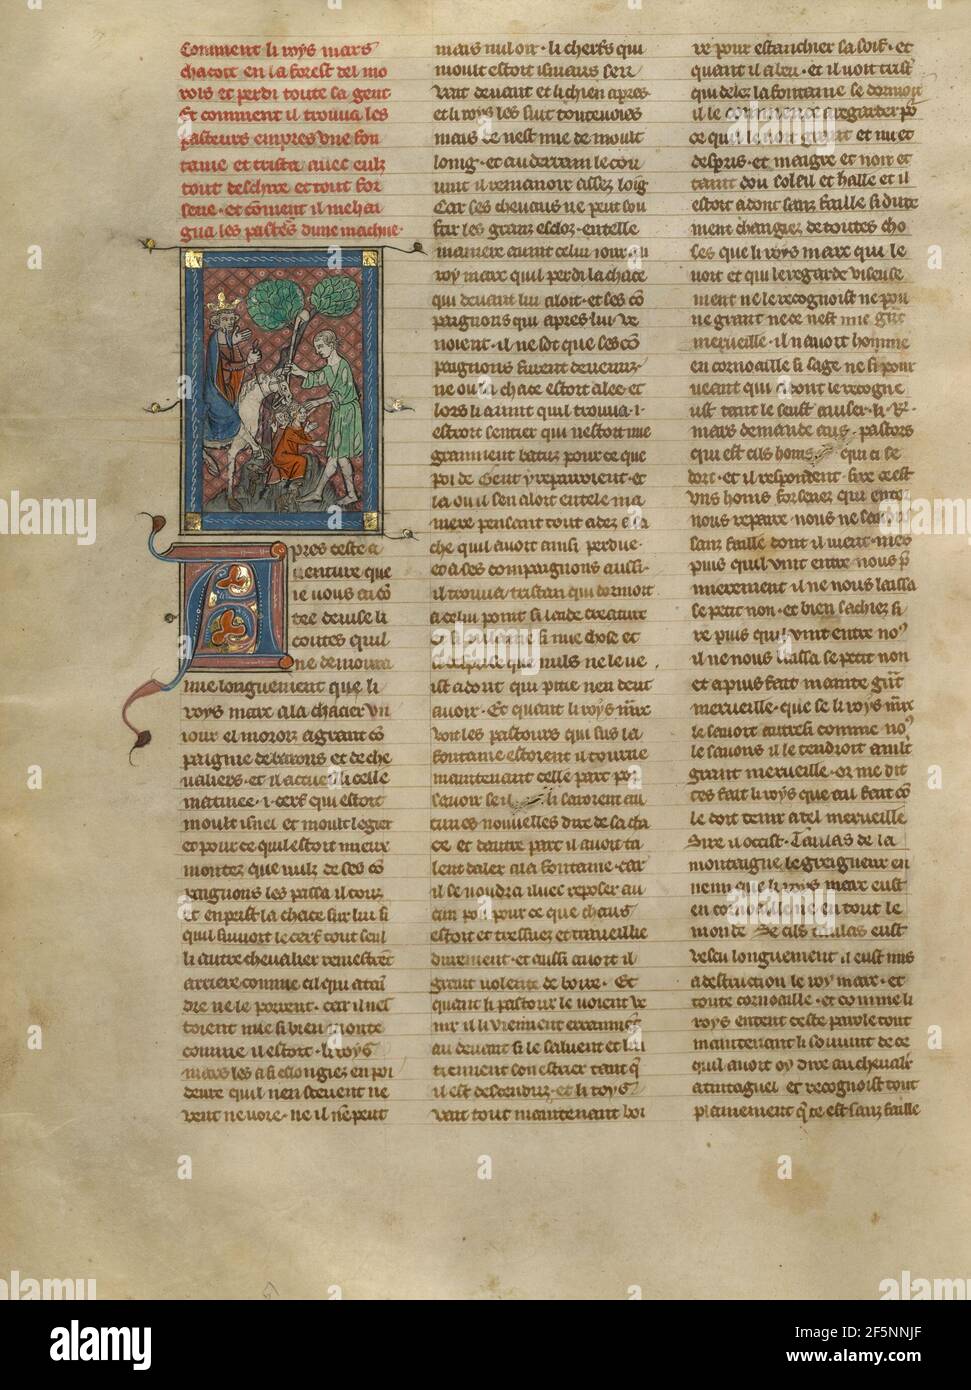 Comment li roys mars
chacoit en la forest del mo
rois et perdi toute sa gent
Et comment il trouua les
pasteurs empres vne fon
taine et tristan auec eulz
tout
et tout for
sene et coment il mehai
gna les pastes dune machue
pres ceste a
uenture que
ie vous ai co
tee deuise li
contes quil
ne demoura
mie longuement que li
roys marc ala chacier vn
iour el moroiz a grant co
paignie de barons et de che
ualiers et il acueilli celle
matinee i cerf qui estoit
moult isnel et moult legier
et pour ce quil estoit mieux
montez que nulz de ses co
paignons les passa il touz
et enprist la chace sur lui si
quil suiuoit le cerf tout seul
li autre cheualier remestrent
arriere comme cil qui atain
dre ne le porent car il nes
toient mie si bien monte
comme il estoit li roys
mars les a si eslongiez en poi
deure quil nen scieuent ne
vent ne voie ne il ne peut
mais nul oir li cherfs qui
moult estoit isniaus sen
vait deuant et li chien apres
et li roys les suit toutesuoies
mais ce nest mie de moult
loing et au darrain le con
uint il remanoir assez loig
Car ses cheuaus ne peut sou
frir les granz escloz en telle
maniere auint celui iour au
roy marc quil perdi la chace
qui deuant lui aloit et ses co
paignons qui apres lui ve
noient il ne sot que ses co
paignons furent deuenuz
ne ou la chace estoit alee et
lors li auint quil trouua i
estroit sentier qui nestoit mie
granment batuz pour ce que
poi de gent y repairoient et
la ou il sen aloit en tele ma
niere pensant tout adez a sa
che quil auoit ainsi perdue
et a ses compaignons aussi
il trouua tristan qui dormoit
a celui point si laide creature
et si uilaine si nue chose et
si desprise que nuls ne le ue
ist adont qui pitie nen deut
auoir Et quant li roys marc
voit les pastours qui sus la
fontaine estoient il tourne
maintenant celle part por
sauoir se il li saroient au
cunes nouuelles dire de sa cha
ce et dautre part il auoit ta
lent daler a la fontaine car
il se voudra iluec reposer au
cun pou pour ce que chaus
estoit et tressuez et trauueillie
durement et aussi auoit il
grant uolente de boire Et
quant li pastour le uoient ve
nir il li viennent errammet
au deuant si le saluent et lui
tiennent son estrier tant que
il est descenduz et li roys
vait tout maintenant boi
re pour estanchier sa soif et
quant il a beu et il uoit trist
qui delez la fontaine se dormoit
il le commence a regarder po
ce quil le uoit grant et nu et
despris et maigre et noir et
taint dou soleil et halle et il
estoit adont sanz faille si dure
ment changiez de toutes cho
ses que li roys marc qui le
uoit et qui le regarde viseuse
ment ne le recognoist ne pou
ne grant ne ce nest mie grant
merueille il nauoit homme
en cornoaille si sage ne si pour
ueant qui adont le recogne
ust tant le seust auiser li R
mars demande aus pastors
qui est cils homs qui ci se
dort et il respondent sire cest
vns homs forsenez qui entor
nous repaire nous ne sauons
sanz faille dont il uient mes
puis quil vint entre nous pre
mierement il ne nous laissa
se petit non et bien sachiez si
re puis quil vint entre nous
il ne nous laissa se petit non
et a puis fait mainte grant
merueille que se li roys marc
le sauoit autresi comme nous
le sauons il le tendroit a mlt
grant merueille or me dit
tes fait li roys que a il fait con
le doit tenir a tel merueille
Sire il occist Taulas de la
montaigne le greigneur en
nemi que li roys marc eust
en cornoaille ne en tout le
monde Se cils taulas eust
vescu longuement il eust mis
a destruction le roy marc et
toute cornoaille et comme li
roys entent ceste parole tout
maintenant li souuint de ce
quil auoit oy dire au cheualier
a tintaguel et recognoist tout
plainement que ce est sanz faille
alamy
Image ID: 2F5NNJF
www.alamy.com